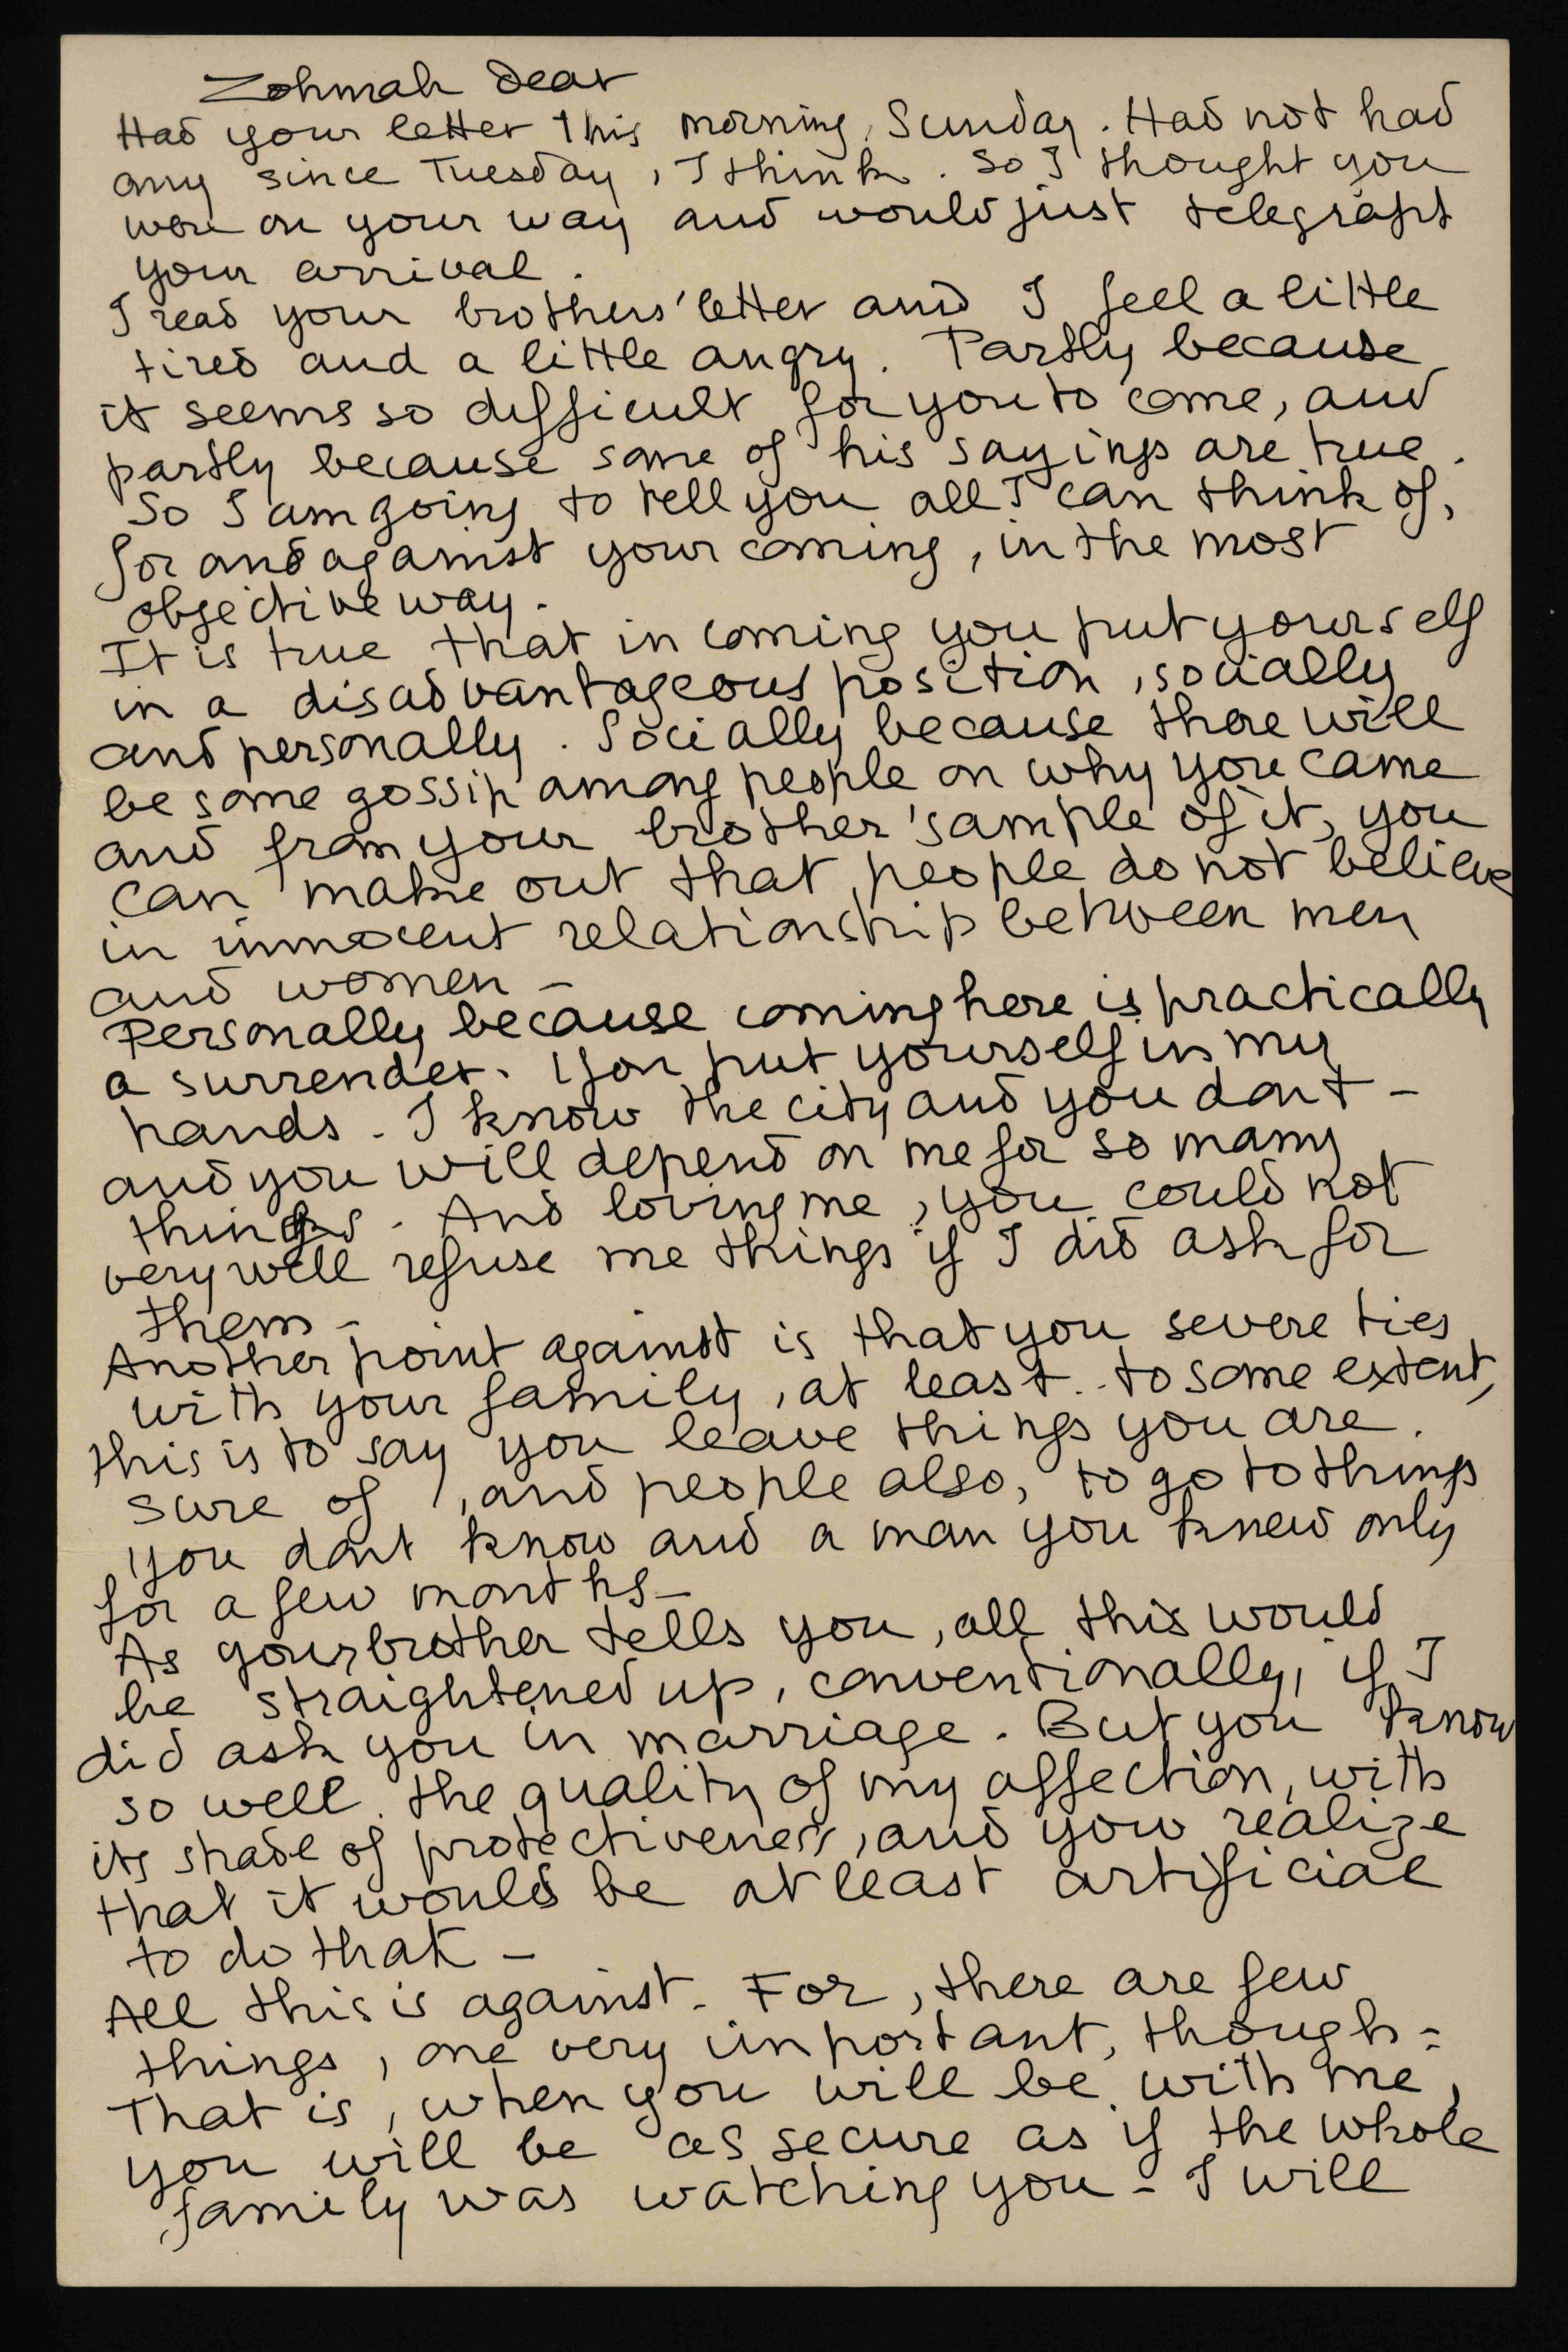 Zohmah dear
Had your letter this morning, Sunday. Had not had
any since Tuesday, I think. So I thought you
were on your way and would just telegraph
your arrival.
I read your brothers' letter and I feel a little
tired and a little angry. Partly because
it seems so difficult for you to come, and
partly because some of his sayings are true.
So I am going to tell you all I can think of,
for and against your coming, in the most
objective way.
It is true that in coming you put yourself
in a disadvantageous position, socially
and personally. Socially because there will
be some gossip among people on why you came
and from your brother's sample of it, you
can make out that people do not believe
in innocent relationship between men
and women -
Personally because coming here is practically
a surrender. You put yourself in my
hands. I know the city and you dont -
and you will depend on me for so many
things. And loving me, you could not
very well refuse me things if I did ask for
them -
Another point against is that you severe ties
with your family, at least to some extent,
this is to say you leave things you are
sure of, and people also, to go to things
you dont know and a man you knew only
for a few months -
As your brother tells you, all this would
be straightened up, conventionally, if I
did ask you in marriage. But you know
so well the quality of my affection, with
its shade of protectiveness, and you realize
that it would be at least artificial
to do that -
All this is against. For, there are few
things, one very important, though:
That is, when you will be with me,
you will be as secure as if the whole
family was watching you - I will